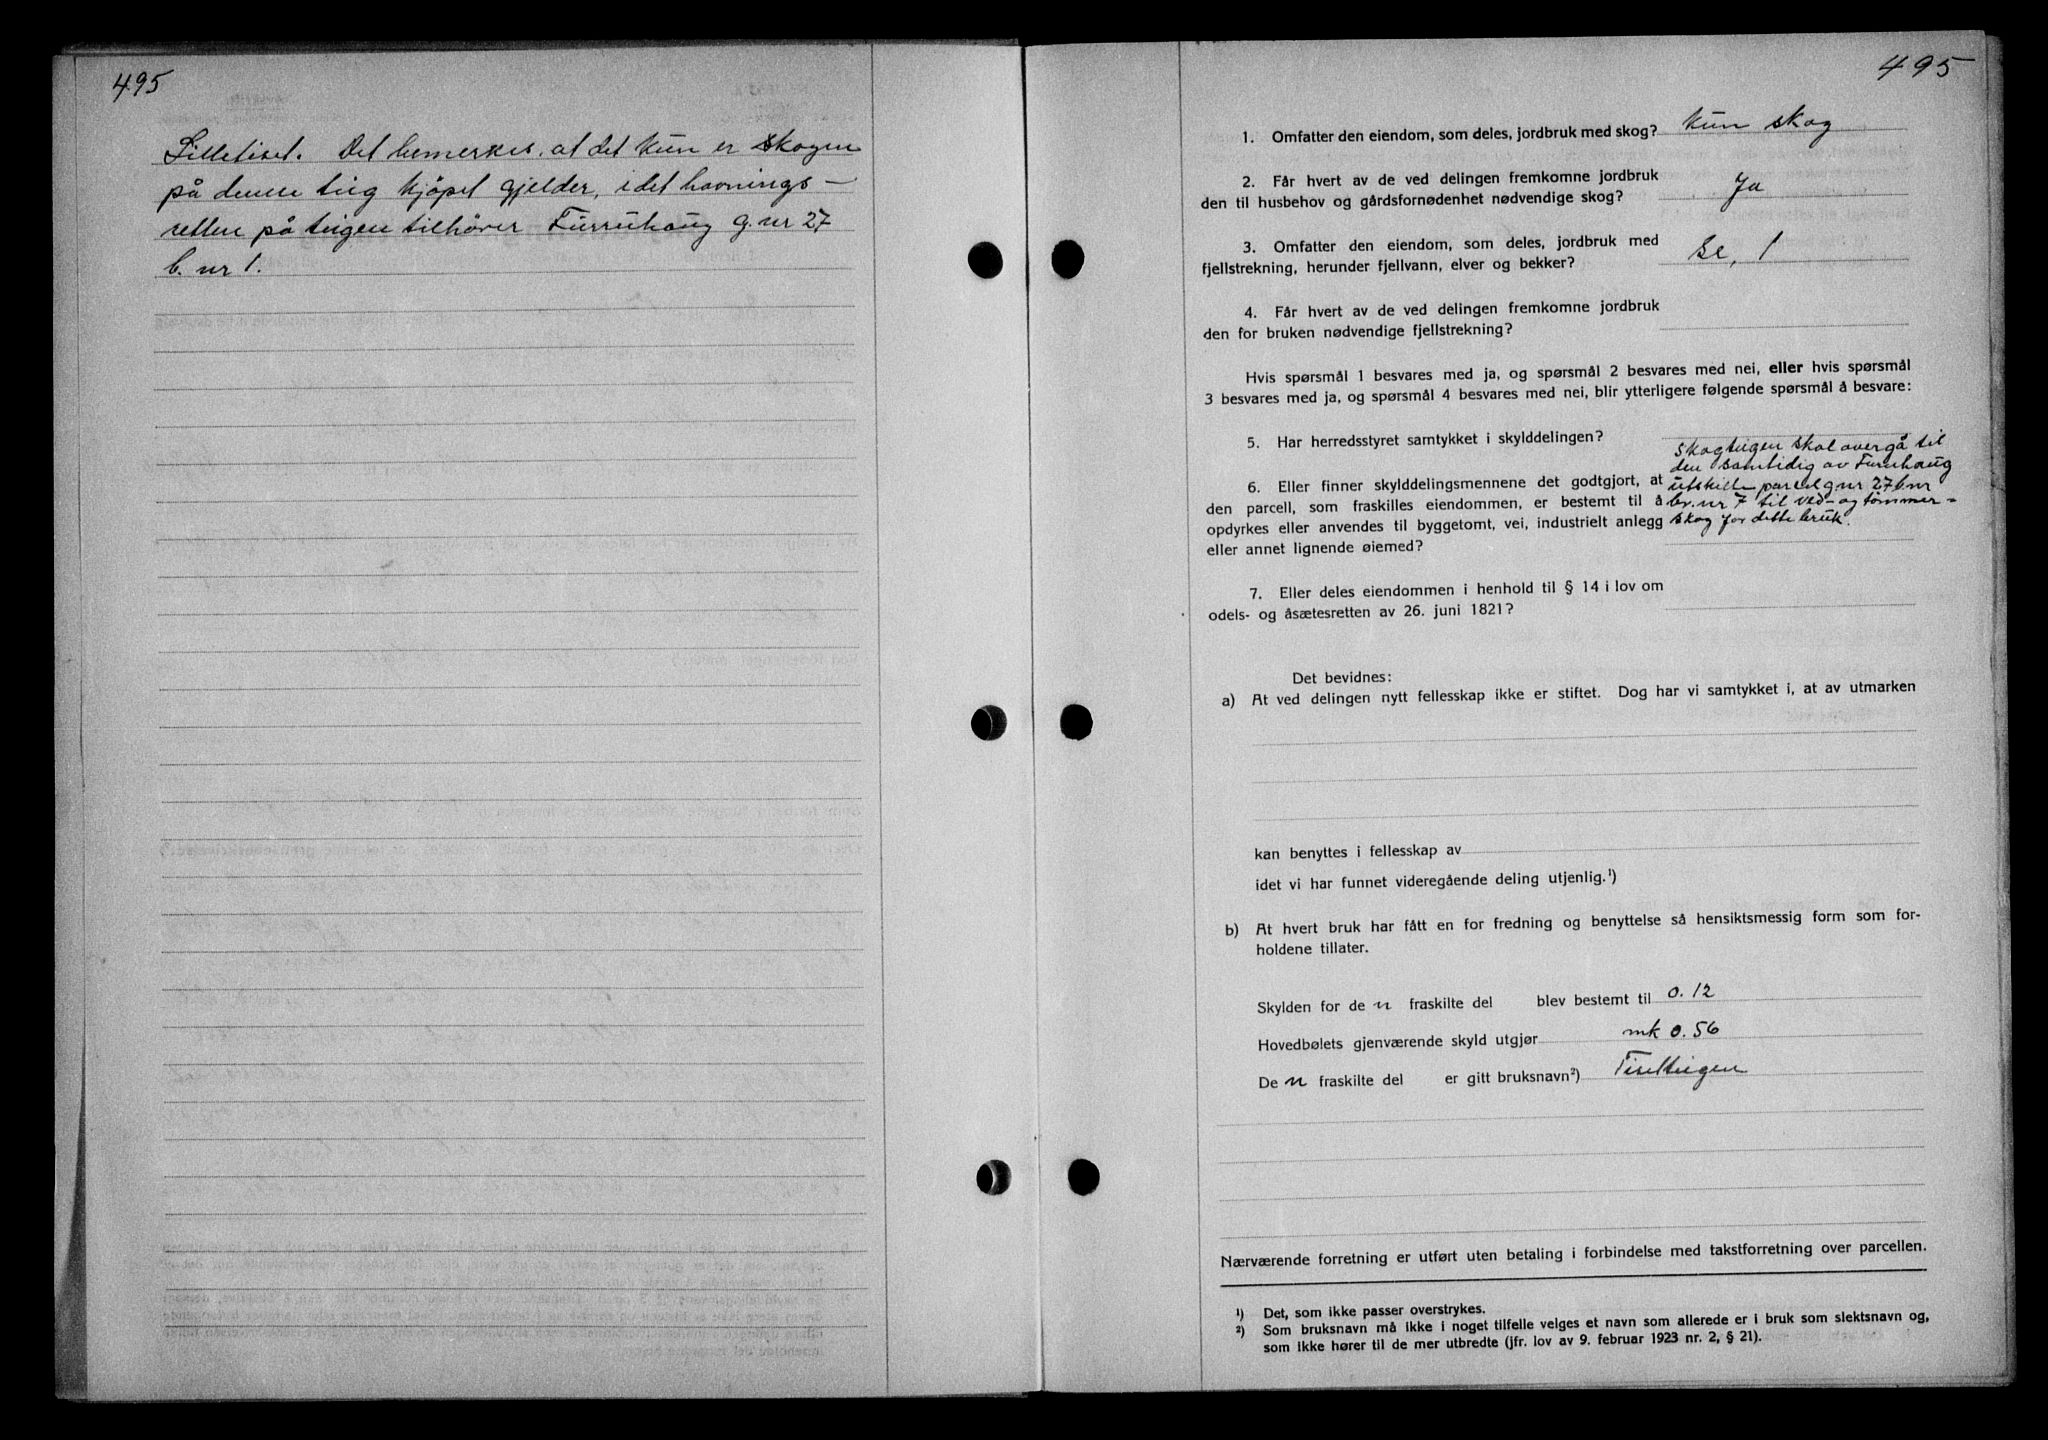 495
Lilletiset. Det bemerkes, at det kun er skogen
på denne teig kjöpet gjelder, idet havnings-
retten på teigen tilhörer Furruhaug g. nr 27
b. nr 1.
495
1. Omfatter den eiendom, som deles, jordbruk med skog? Kun skog
2. Får hvert av de ved delingen fremkomne jordbruk
den til husbehov og gårdsfornødenhet nødvendige skog? Ja
3. Omfatter den eiendom, som deles, jordbruk med
fjellstrekning, herunder fjellvann, elver og bekker? Se, 1
4. Får hvert av de ved delingen fremkomne jordbruk
den for bruken nødvendige fjellstrekning?
Hvis spørsmål 1 besvares med ja, og spørsmål 2 besvares med nei, eller hvis spørsmål
3 besvares med ja, og spørsmål 4 besvares med nei, blir ytterligere følgende spørsmål å besvare:
5. Har herredsstyret samtykket i skylddelingen?
6. Eller finner skylddelingsmennene det godtgjort, at
den parcell, som fraskilles eiendommen, er bestemt til å
opdyrkes eller anvendes til byggetomt, vei, industrielt anlegg
eller annet lignende øiemed?
Skogteigen skal overgå til
den samtidig av Furuhaug
utskilte parcel gnr 27 bnr
br. nr 7 til ved- og tömmer-
skog for dette bruk.
7. Eller deles eiendommen i henhold til § 14 i lov om
odels- og åsætesretten av 26. juni 1821?
Det bevidnes:
a) At ved delingen nytt fellesskap ikke er stiftet. Dog har vi samtykket i, at av utmarken
kan benyttes i fellesskap av
idet vi har funnet videregående deling utjenlig.¹)
b) At hvert bruk har fått en for fredning og benyttelse så hensiktsmessig form som for-
holdene tillater.
Skylden for de n fraskilte del blev bestemt til 0.12
Hovedbølets gjenværende skyld utgjør mk 0.56
De n fraskilte del er gitt bruksnavn²) Tiseltteigen
Nærværende forretning er utført uten betaling i forbindelse med takstforretning over parcellen.
¹) Det, som ikke passer overstrykes.
²) Som bruksnavn må ikke i noget tilfelle velges et navn som allerede er i bruk som slektsnavn og,
som ikke hører til de mer utbredte (jfr. lov av 9. februar 1923 nr. 2, § 21).